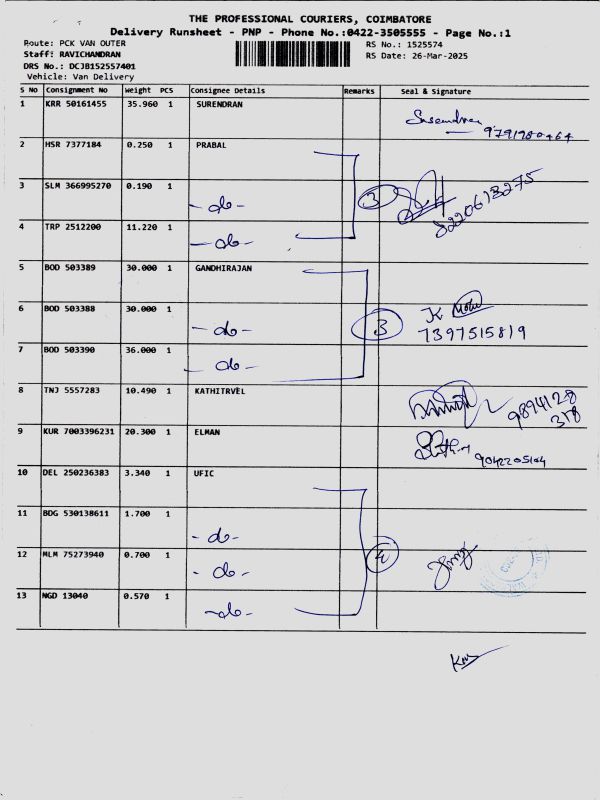 THE PROFESSIONAL COURIERS, COIMBATORE
Delivery Runsheet - PNP - Phone No.:0422-3505555 - Page No.:1
Route: PCK VAN OUTER RS No.: 1525574
Staff: RAVICHANDRAN RS Date: 26-Mar-2025
DRS No.: DCJB152557401
Vehicle: Van Delivery
S No Consignment No Weight PCS Consignee Details Remarks Seal & Signature
1 KRR 50161455 35.960 1 SURENDRAN Surendran
9791980464
2 HSR 7377184 0.250 1 PRABAL
3 SLM 366995270 0.190 1 - do - 3 8220613275
4 TRP 2512200 11.220 1 - do -
5 BOD 503389 30.000 1 GANDHIRAJAN
6 BOD 503388 30.000 1 - do - 3 K
7397515819
7 BOD 503390 36.000 1 - do -
8 TNJ 5557283 10.490 1 KATHITRVEL 9894128
318
9 KUR 7003396231 20.300 1 ELMAN
9042205104
10 DEL 250236383 3.340 1 UFIC
11 BDG 530138611 1.700 1 - do -
12 MLM 75273940 0.700 1 - do - 4
13 NGD 13040 0.570 1 - do -